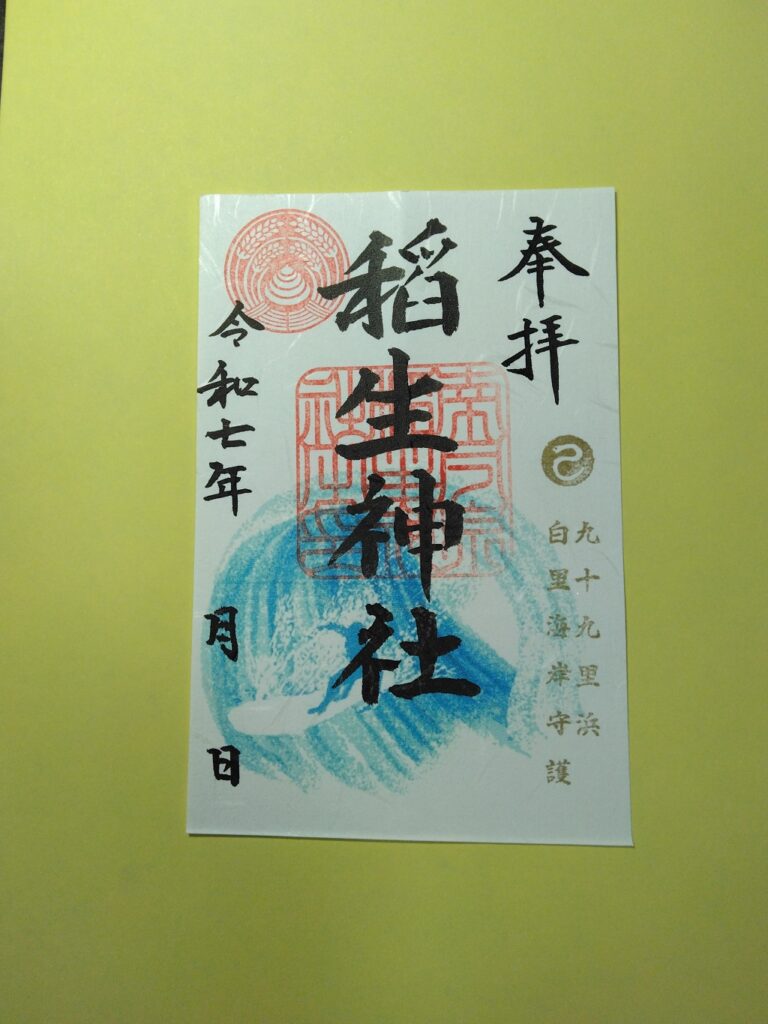 奉拝
九十九里浜
白里海岸守護
稻生神社
令和七年 月 日